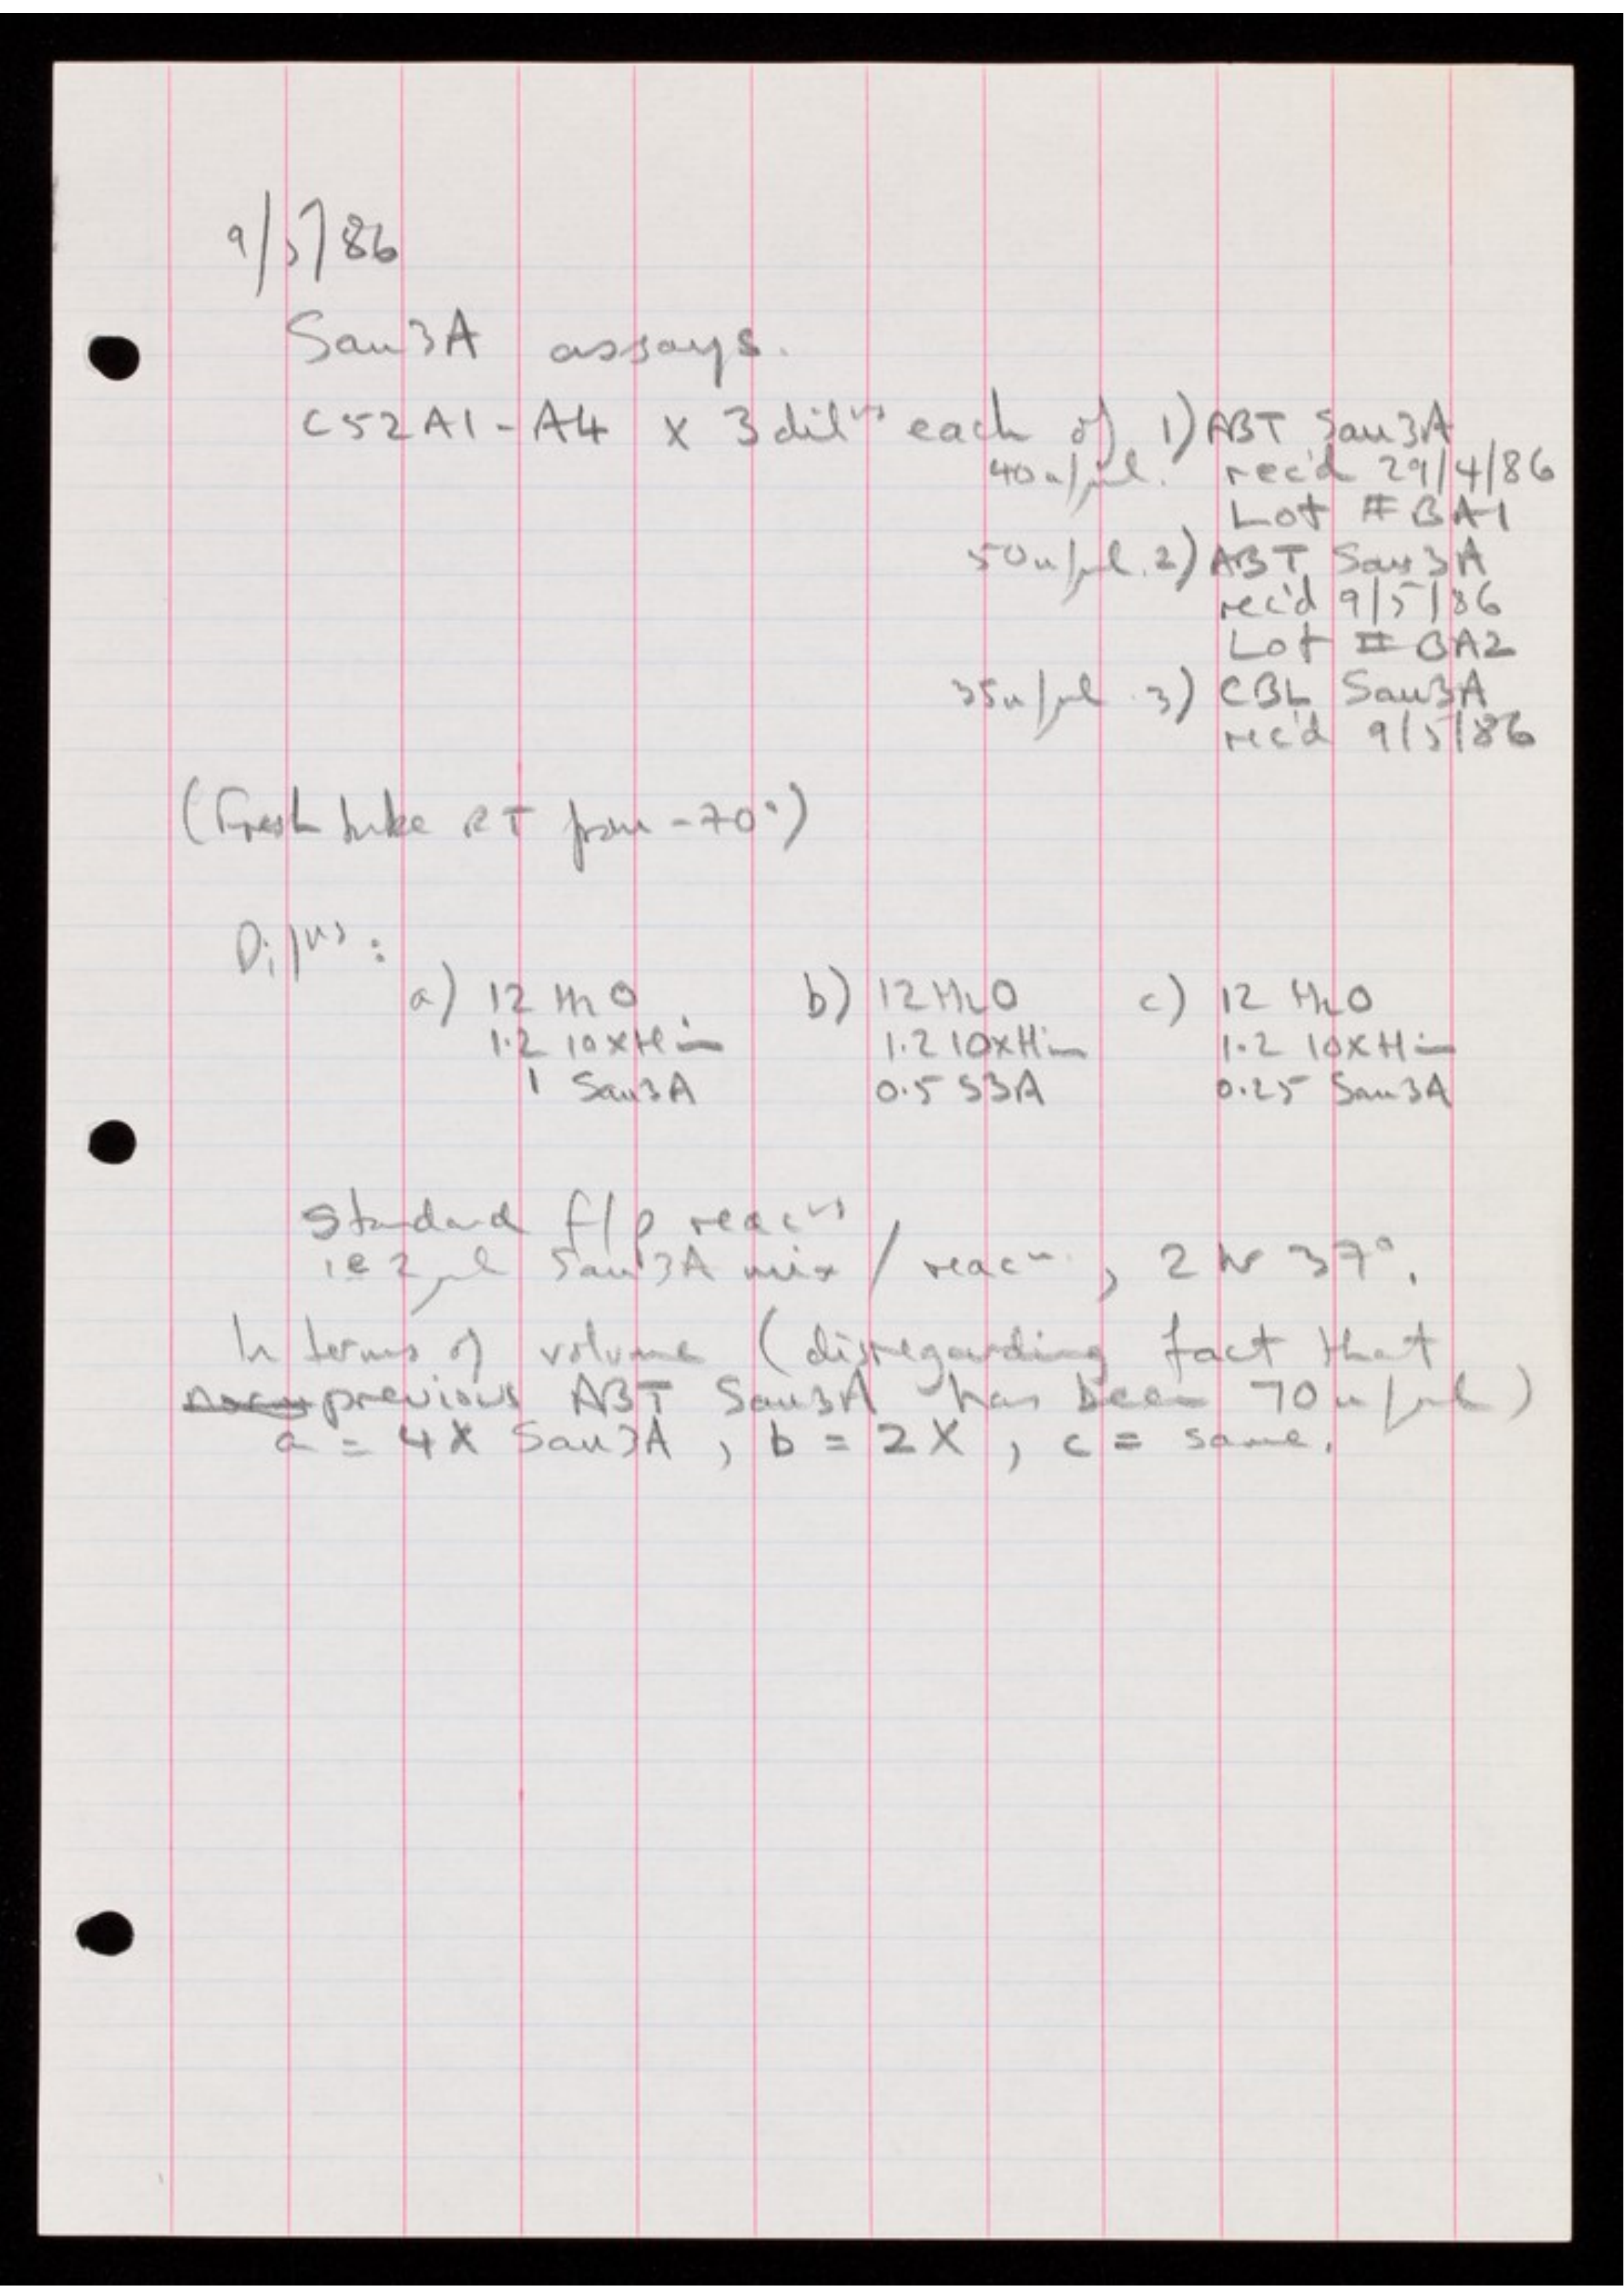 9/5/86
Sau3A assays.
C52A1-A4 x 3 dilns each of 1) ABT Sau3A
40u/μl. rec'd 29/4/86
Lot # BA1
50u/μl. 2) ABT Sau3A
rec'd 9/5/86
Lot # BA2
35u/μl 3) CBL Sau3A
rec'd 9/5/86
(Fresh tube RT from -70°)
Dilns:
a) 12 H2O b) 12 H2O c) 12 H2O
1.2 10xHin 1.2 10xHin 1.2 10xHin
1 Sau3A 0.5 S3A 0.25 Sau3A
Standard f/p reacns
ie 2μl Sau3A mix / reacn, 2 hr 37°.
In terms of volume (disregarding fact that
previous ABT Sau3A has been 70u/μl)
a = 4X Sau3A, b = 2X, c = same.